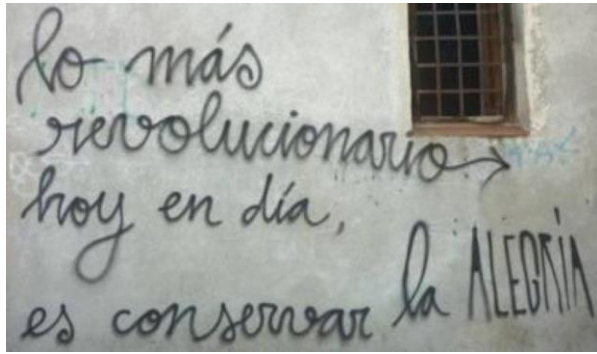 lo más
revolucionario
hoy en día,
es conservar la ALEGRÍA